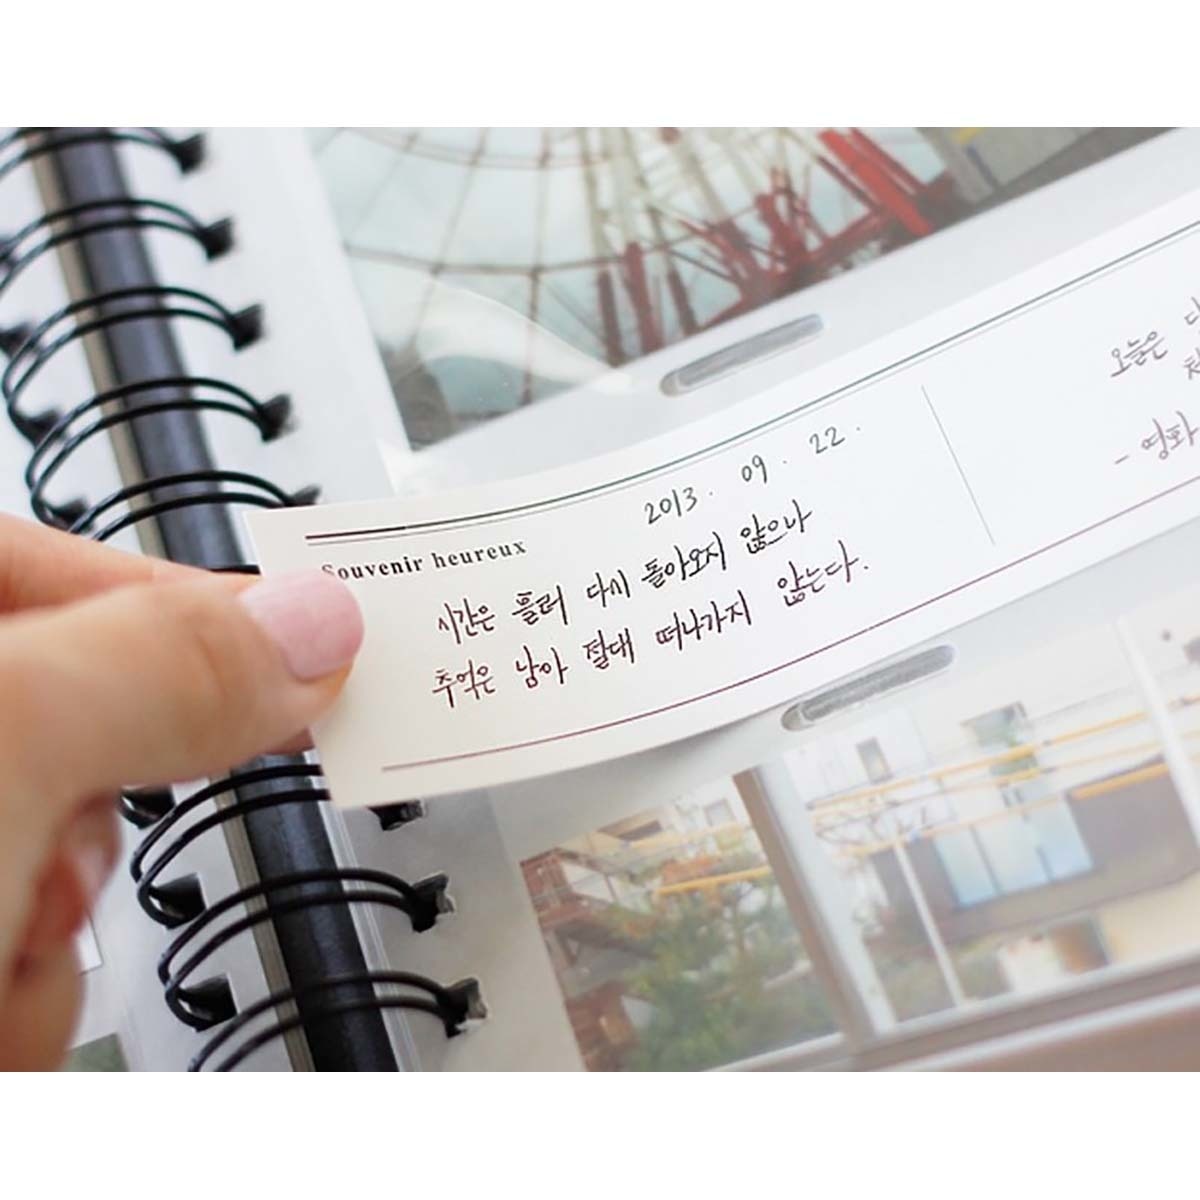 Souvenir heureux
2013 . 09 . 22 .
시간은 흘러 다시 돌아오지 않으나
추억은 남아 절대 떠나가지 않는다.
오늘은
- 영화